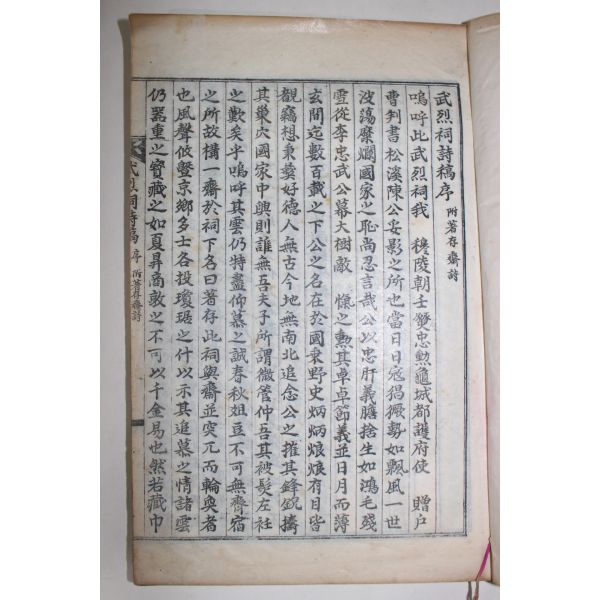 武烈祠詩稿序 附著存齋詩
嗚呼此武烈祠我 穆陵朝壬燹忠勲龜城都護府使 贈戶
曹判書松溪陳公妥影之所也當日日寇猖獗勢如飄風一世
波蕩糜爛國家之恥尚忍言哉公以忠肝義膽捨生如鴻毛殘
䨥從李忠武公幕大樹敵 愾之勲其卓卓節義並日月而薄
玄間迄數百載之下公之名在於國乘野史炳炳烺烺有目皆
覩竊想秉彛好德人無古今地無南北追念公之摧其鋒銳擣
其巢穴國家中興則誰無吾夫子所謂微管仲吾其被髮左衽
之歎矣乎嗚呼其雲仍特盡仰慕之誠春秋俎豆不可無齊宿
之所故構一齋於祠下名曰著存此祠與齋並突兀而輪奐者
也風聲攸曁京鄉多士各投瓊琚之什以示其追慕之情諸雲
仍噐重之寶藏之如夏鼎商敦之不可以千金易也然若藏巾
武烈祠詩稿 序 附著存齋詩